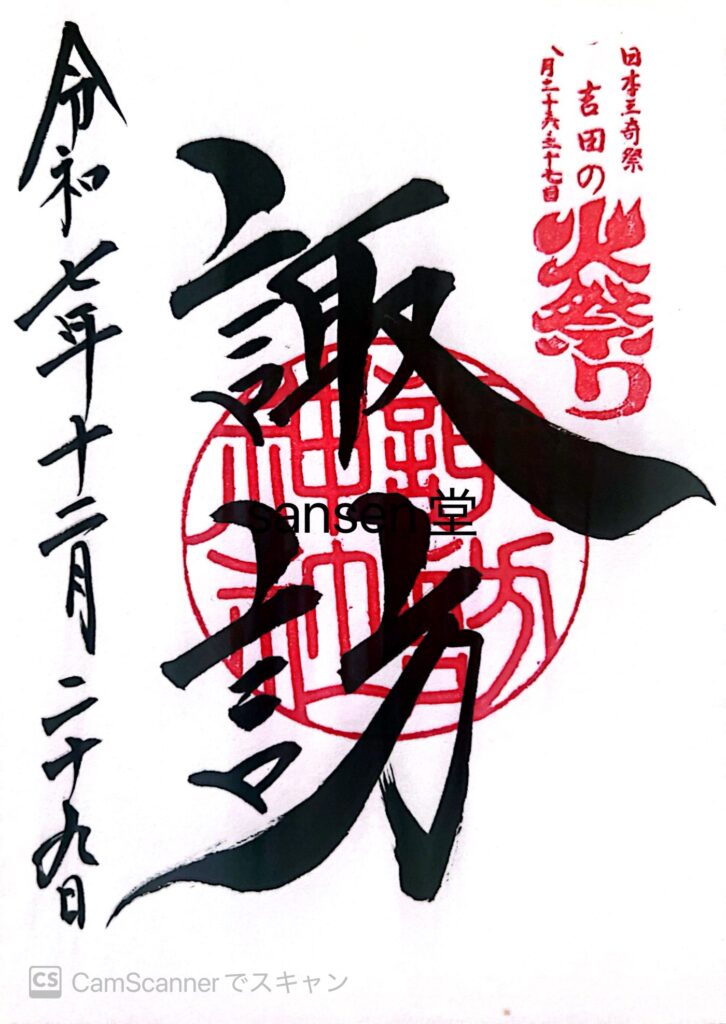 日本三奇祭
吉田の
火祭り
八月二十六、二十七日
諏訪
諏訪
神社
令和七年十二月二十九日
sansen堂
CS CamScannerでスキャン